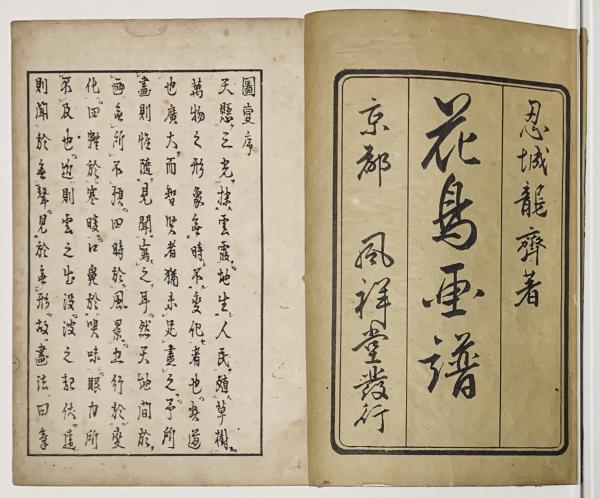 忍城龍齊著
花鳥画譜
京都 風祥堂發行
圖変序
天懸之光雲霞地生人民殖草樹
萬物之形象無時不変化者也道
也廣大而智賢者猶未足畫之予所
畫則惟隨見聞寫之耳然天地間於
画無所不預四時於風景五行於変
化四於寒暖口鼻於嗅味眼力所
不及也近則雲之出没波之起伏遠
則聞於無聲見於無形故畫法曰筆